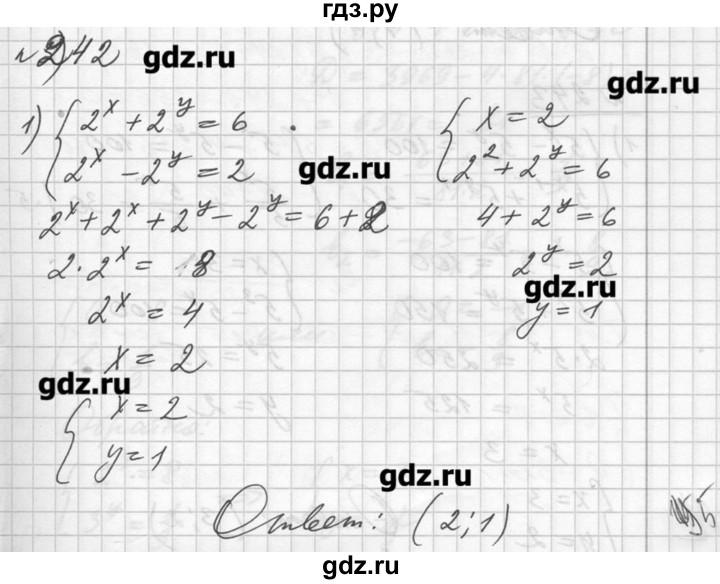 гдз.ру
№ 242
gdz.ru
gdz.ru
1) { 2^x + 2^y = 6
2^x - 2^y = 2
gdz.ru
2^x + 2^x + 2^y - 2^y = 6 + 2
2 · 2^x = 8
2^x = 4
x = 2
gdz.ru
{ x = 2
y = 1
{ x = 2
2^2 + 2^y = 6
4 + 2^y = 6
2^y = 2
gdz.ru
y = 1
gdz.ru
Ответ: (2; 1)
gdz.ru